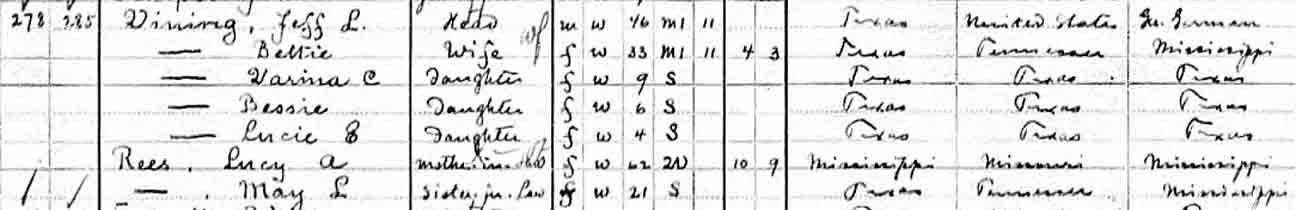 278 285 Vining, Jeff L. Head m w 46 M1 11 Texas United States Ge. German
— Bettie Wife f w 33 M1 11 4 3 Texas Tennessee Mississippi
— Varina C Daughter f w 9 S Texas Texas Texas
— Bessie Daughter f w 6 S Texas Texas Texas
— Lucie E Daughter f w 4 S Texas Texas Texas
Rees, Lucy A Mother-in-law f w 62 W 10 9 Mississippi Missouri Mississippi
— , May L Sister-in-Law f w 21 S Texas Tennessee Mississippi